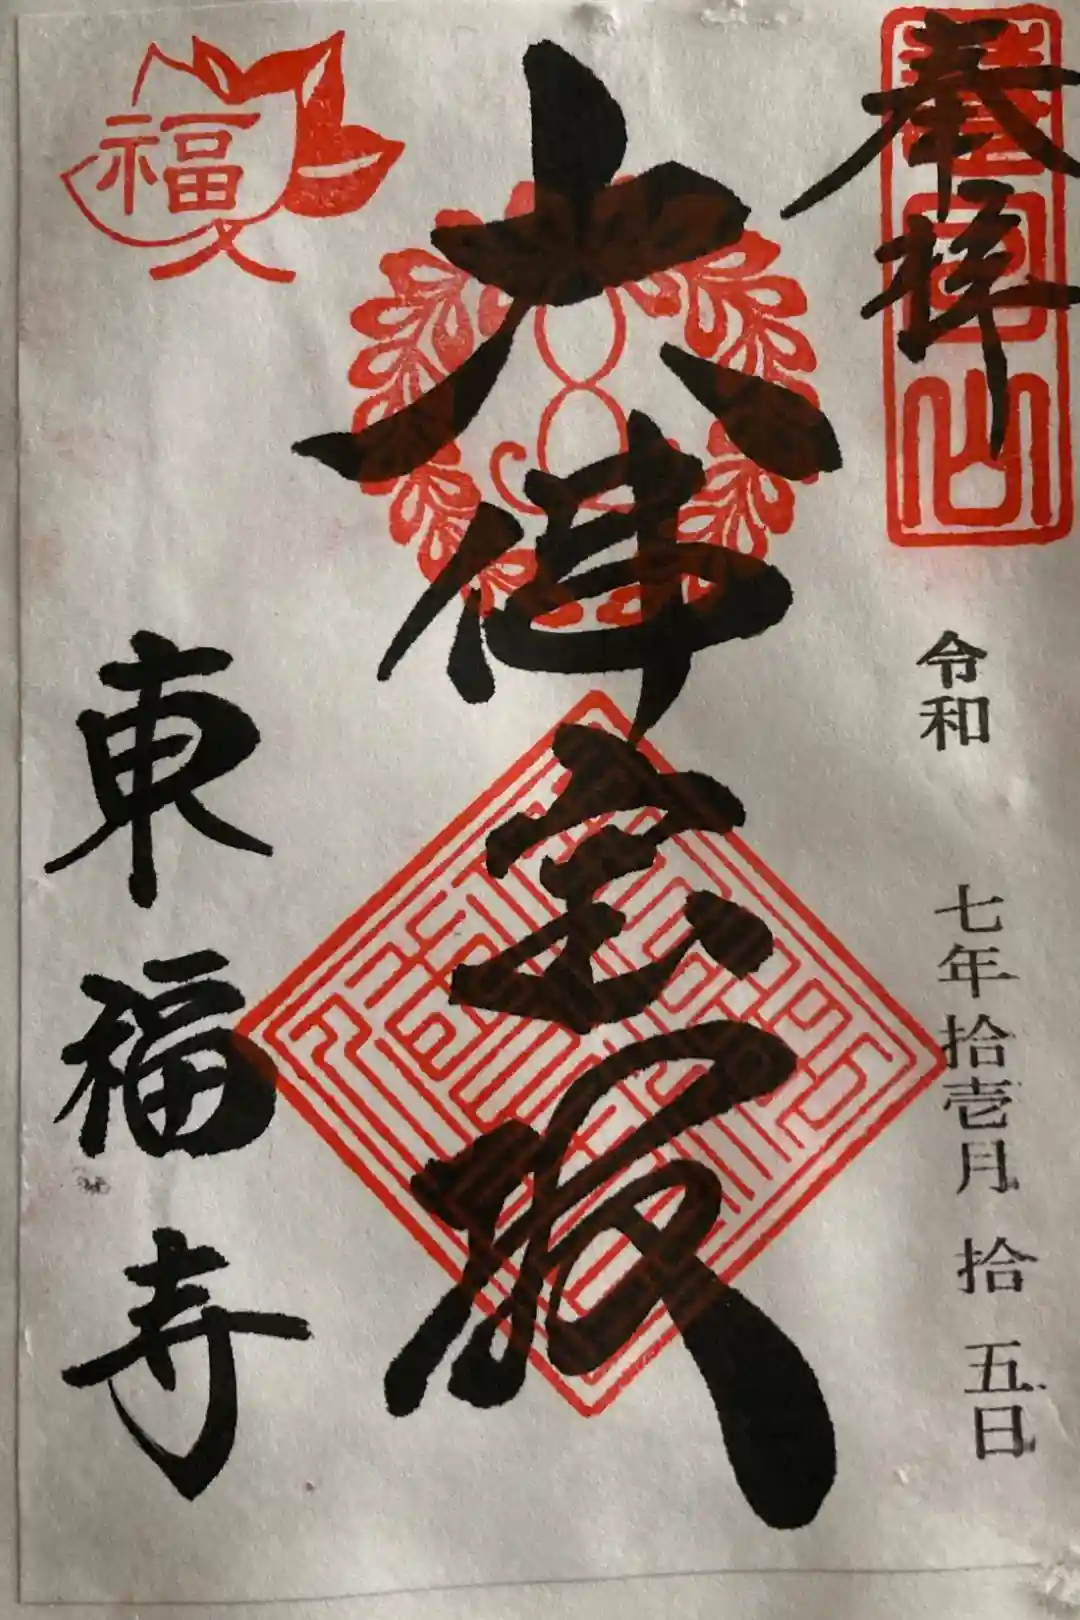 奉拝
慧日山
令和 七年拾壱月 拾 五日
大佛宝殿
福
東福寺